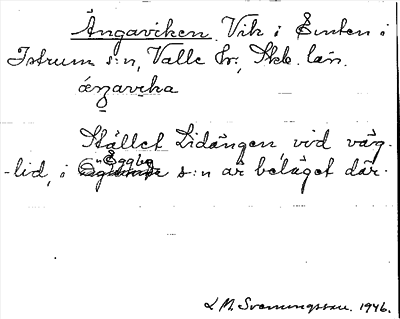 Ängaviken Vik i Emten i
Istrum s:n, Valle hr, Skb. län.
ä́ŋavika
Stället Lidängen, vid väg-
-lid, i Eggby s:n är beläget där.
L M. Svenungsson. 1946.